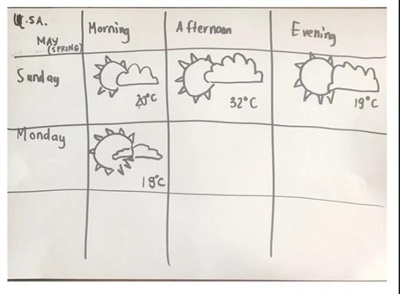 U.SA. Morning Afternoon Evening
MAY
(SPRING)
Sunday
20°C 32°C 19°C
Monday